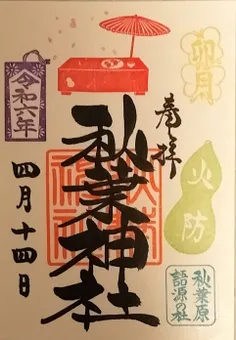 卯月
奉拝
火防
秋葉原
語源の社
秋葉神社
令和六年
四月十四日